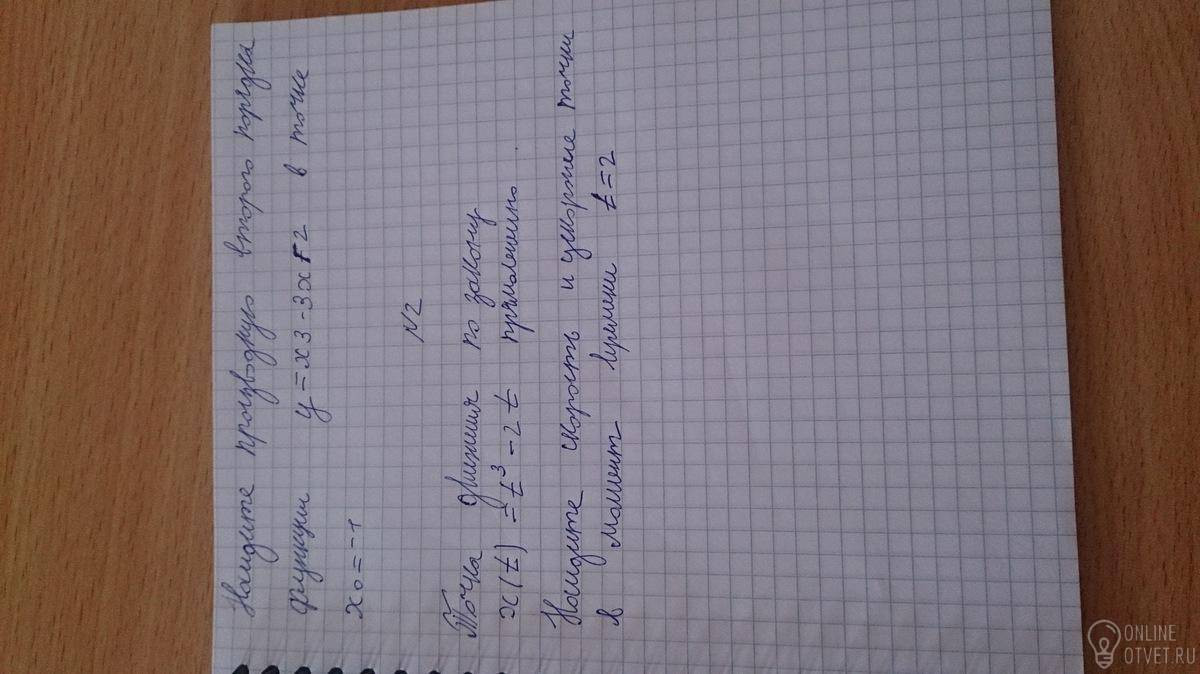 Найдите производную второго порядка
функции y=x3-3x+2 в точке
x0=-1
N2
Точка движится по закону
x(t)=t³-2t прямолинейно.
Найдите скорость и ускорение точки
в момент времени t=2
ONLINE
OTVET.RU